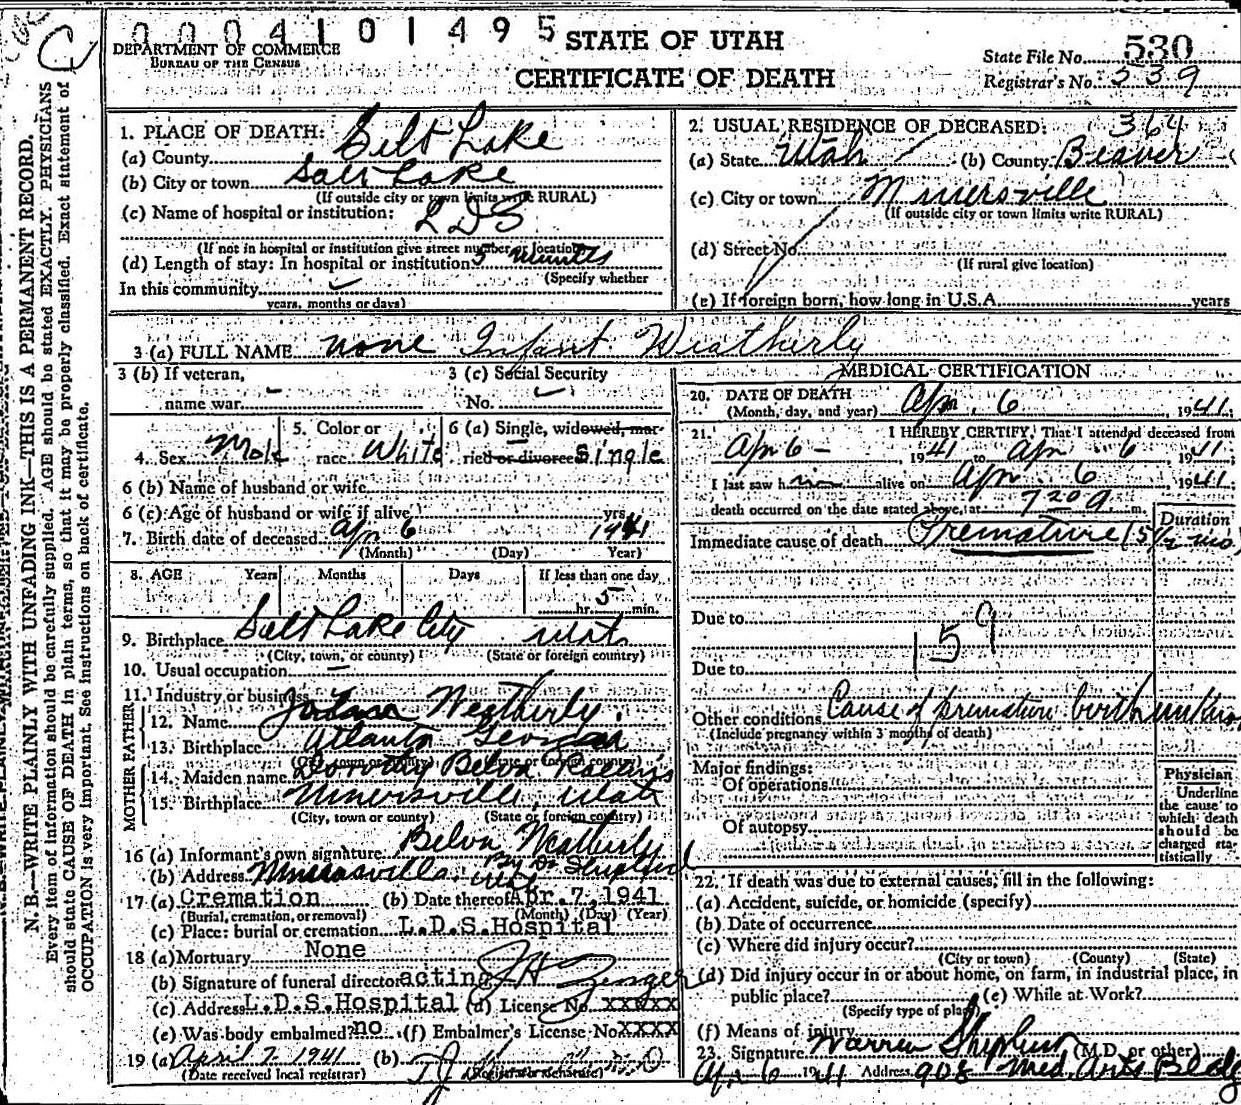 0004101495
DEPARTMENT OF COMMERCE
BUREAU OF THE CENSUS
STATE OF UTAH
CERTIFICATE OF DEATH
State File No. 530
Registrar's No. 539
N. B.—WRITE PLAINLY WITH UNFADING INK—THIS IS A PERMANENT RECORD.
Every item of information should be carefully supplied. AGE should be stated EXACTLY. PHYSICIANS
should state CAUSE OF DEATH in plain terms, so that it may be properly classified. Exact statement of
OCCUPATION is very important. See instructions on back of certificate.
1. PLACE OF DEATH:
(a) County Salt Lake
(b) City or town Salt Lake
(If outside city or town limits write RURAL)
(c) Name of hospital or institution:
LDS
(If not in hospital or institution give street number or location)
(d) Length of stay: In hospital or institution 5 minutes
(Specify whether
In this community
years, months or days)
2. USUAL RESIDENCE OF DECEASED: 364
(a) State Utah (b) County Beaver
(c) City or town Minersville
(If outside city or town limits write RURAL)
(d) Street No.
(If rural give location)
(e) If foreign born, how long in U.S.A. years
3 (a) FULL NAME none Infant Weatherly
3 (b) If veteran,
name war -
3 (c) Social Security
No.
4. Sex Male
5. Color or
race White
6 (a) Single, widowed, mar-
ried or divorced Single
6 (b) Name of husband or wife
6 (c) Age of husband or wife if alive yrs.
7. Birth date of deceased Apr 6 1941
(Month) (Day) Year)
8. AGE Years Months Days If less than one day
hr. 5 min.
9. Birthplace Salt Lake City Utah
(City, town, or county) (State or foreign country)
10. Usual occupation -
11. Industry or business
FATHER
12. Name Weatherly
13. Birthplace Atlanta Georgia
(City, town or county) (State or foreign country)
MOTHER
14. Maiden name Dorothy Belva Rollins
15. Birthplace Minersville, Utah
(City, town or county) (State or foreign country)
16 (a) Informant's own signature Belva Weatherly
By Dr Shepherd
(b) Address Minersville, Utah
17 (a) Cremation (b) Date thereof Apr. 7, 1941
(Burial, cremation, or removal) (Month) (Day) (Year)
(c) Place: burial or cremation L.D.S. Hospital
18 (a) Mortuary None
(b) Signature of funeral director acting J H Zenger
(c) Address L.D.S. Hospital (d) License No. xxxxx
(e) Was body embalmed? no (f) Embalmer's License No. XXXX
19 (a) April 7 1941 (b) M.D
(Date received local registrar) (Registrar's signature)
MEDICAL CERTIFICATION
20. DATE OF DEATH
(Month, day, and year) Apr. 6, 1941
21. I HEREBY CERTIFY, That I attended deceased from
Apr 6 - 1941 to Apr 6 1941
I last saw him alive on Apr 6 1941
death occurred on the date stated above, at 720 a m.
Duration
Immediate cause of death Premature (5 1/2 mo)
Due to
159
Due to
Other conditions Cause of premature birth unknown
(Include pregnancy within 3 months of death)
Major findings:
Of operations
Of autopsy
Physician
Underline
the cause to
which death
should be
charged sta-
tistically
22. If death was due to external causes, fill in the following:
(a) Accident, suicide, or homicide (specify)
(b) Date of occurrence
(c) Where did injury occur?
(City or town) (County) (State)
(d) Did injury occur in or about home, on farm, in industrial place, in
public place? (e) While at Work?
(Specify type of place)
(f) Means of injury
23. Signature Warren Shepherd (M.D. or other)
Apr 6 1941 Address 908 Med. Arts Bldg